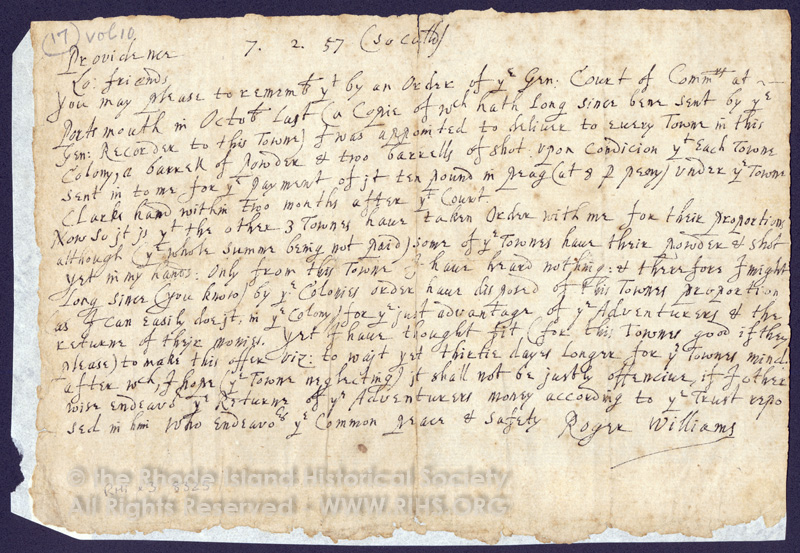 (17) vol 10.
Providence 7. 2. 57 (so calld)
Lo: friends
You may please to remembr yt by an Order of ye Gen: Court of Commrs at
Portsmouth in Octobr Last (a Copie of wch hath Long since bene sent by ye
Gen: Recorder to this Towne) I was appointed to deliver to euery Towne in this
Colony, a barrell of Powder & two barrells of shot upon Condicion yt Each Towne
sent in to me for ye payment of it ten pound in peag (at 8 p peny) under ye Towne
Clarks hand within two months after yt Court.
Now so it is yt the other 3 Townes haue taken Order with me for their proportion,
although (ye whole summe being not paid) some of ye Townes haue their powder & shot
yet in my hands: Only from this Towne I haue heard nothing: & therefore I might
Long since (you know) by ye Colonies order haue disposed of this Townes proportion
as I can easily doe it in ye Colony) for ye just advantage of ye Adventurers & the
returne of their monies. yet I haue thought fit (for this Townes good if they
please) to make this offer viz: to wait yet thirtie dayes Longer for ye Townes mind.
after wch, I hope (ye Towne neglecting) it shall not be justly offenciue, if I other
wise endeavor ye Returne of ye Adventurers money according to ye Trust repo
sed in him Who endeavors ye Common peace & safety Roger Williams
© The Rhode Island Historical Society
RHi X3 8325
All Rights Reserved - WWW.RIHS.ORG